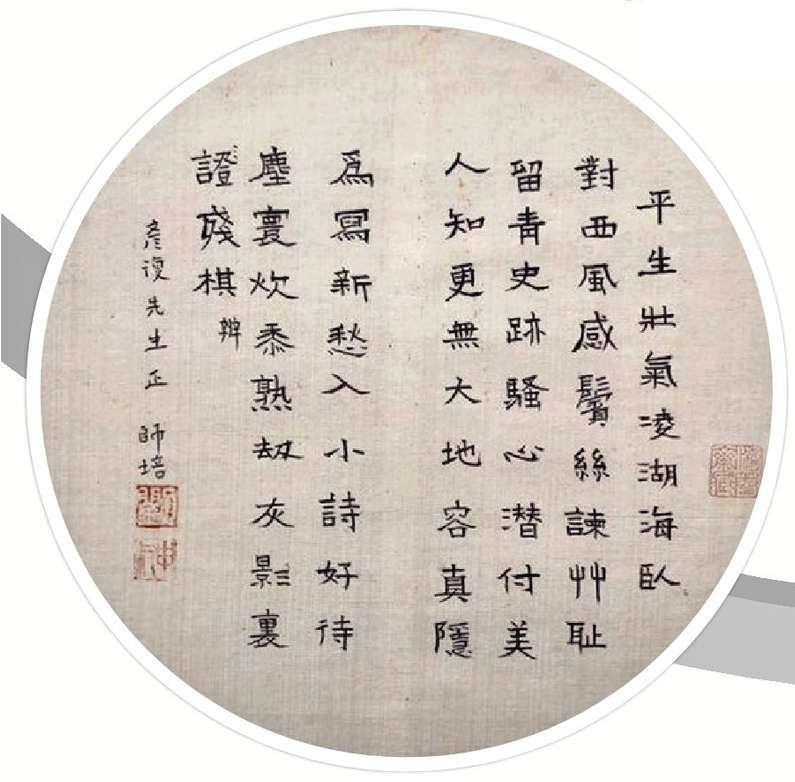 平生壯氣凌湖海臥
對西風感鬢絲諫艸耻
留青史跡騷心潜付美
人知更無大地容真隱
爲寫新愁入小詩好待
塵寰炊黍熟劫灰影裏
證殘棋 辨
彥復先生正 師培